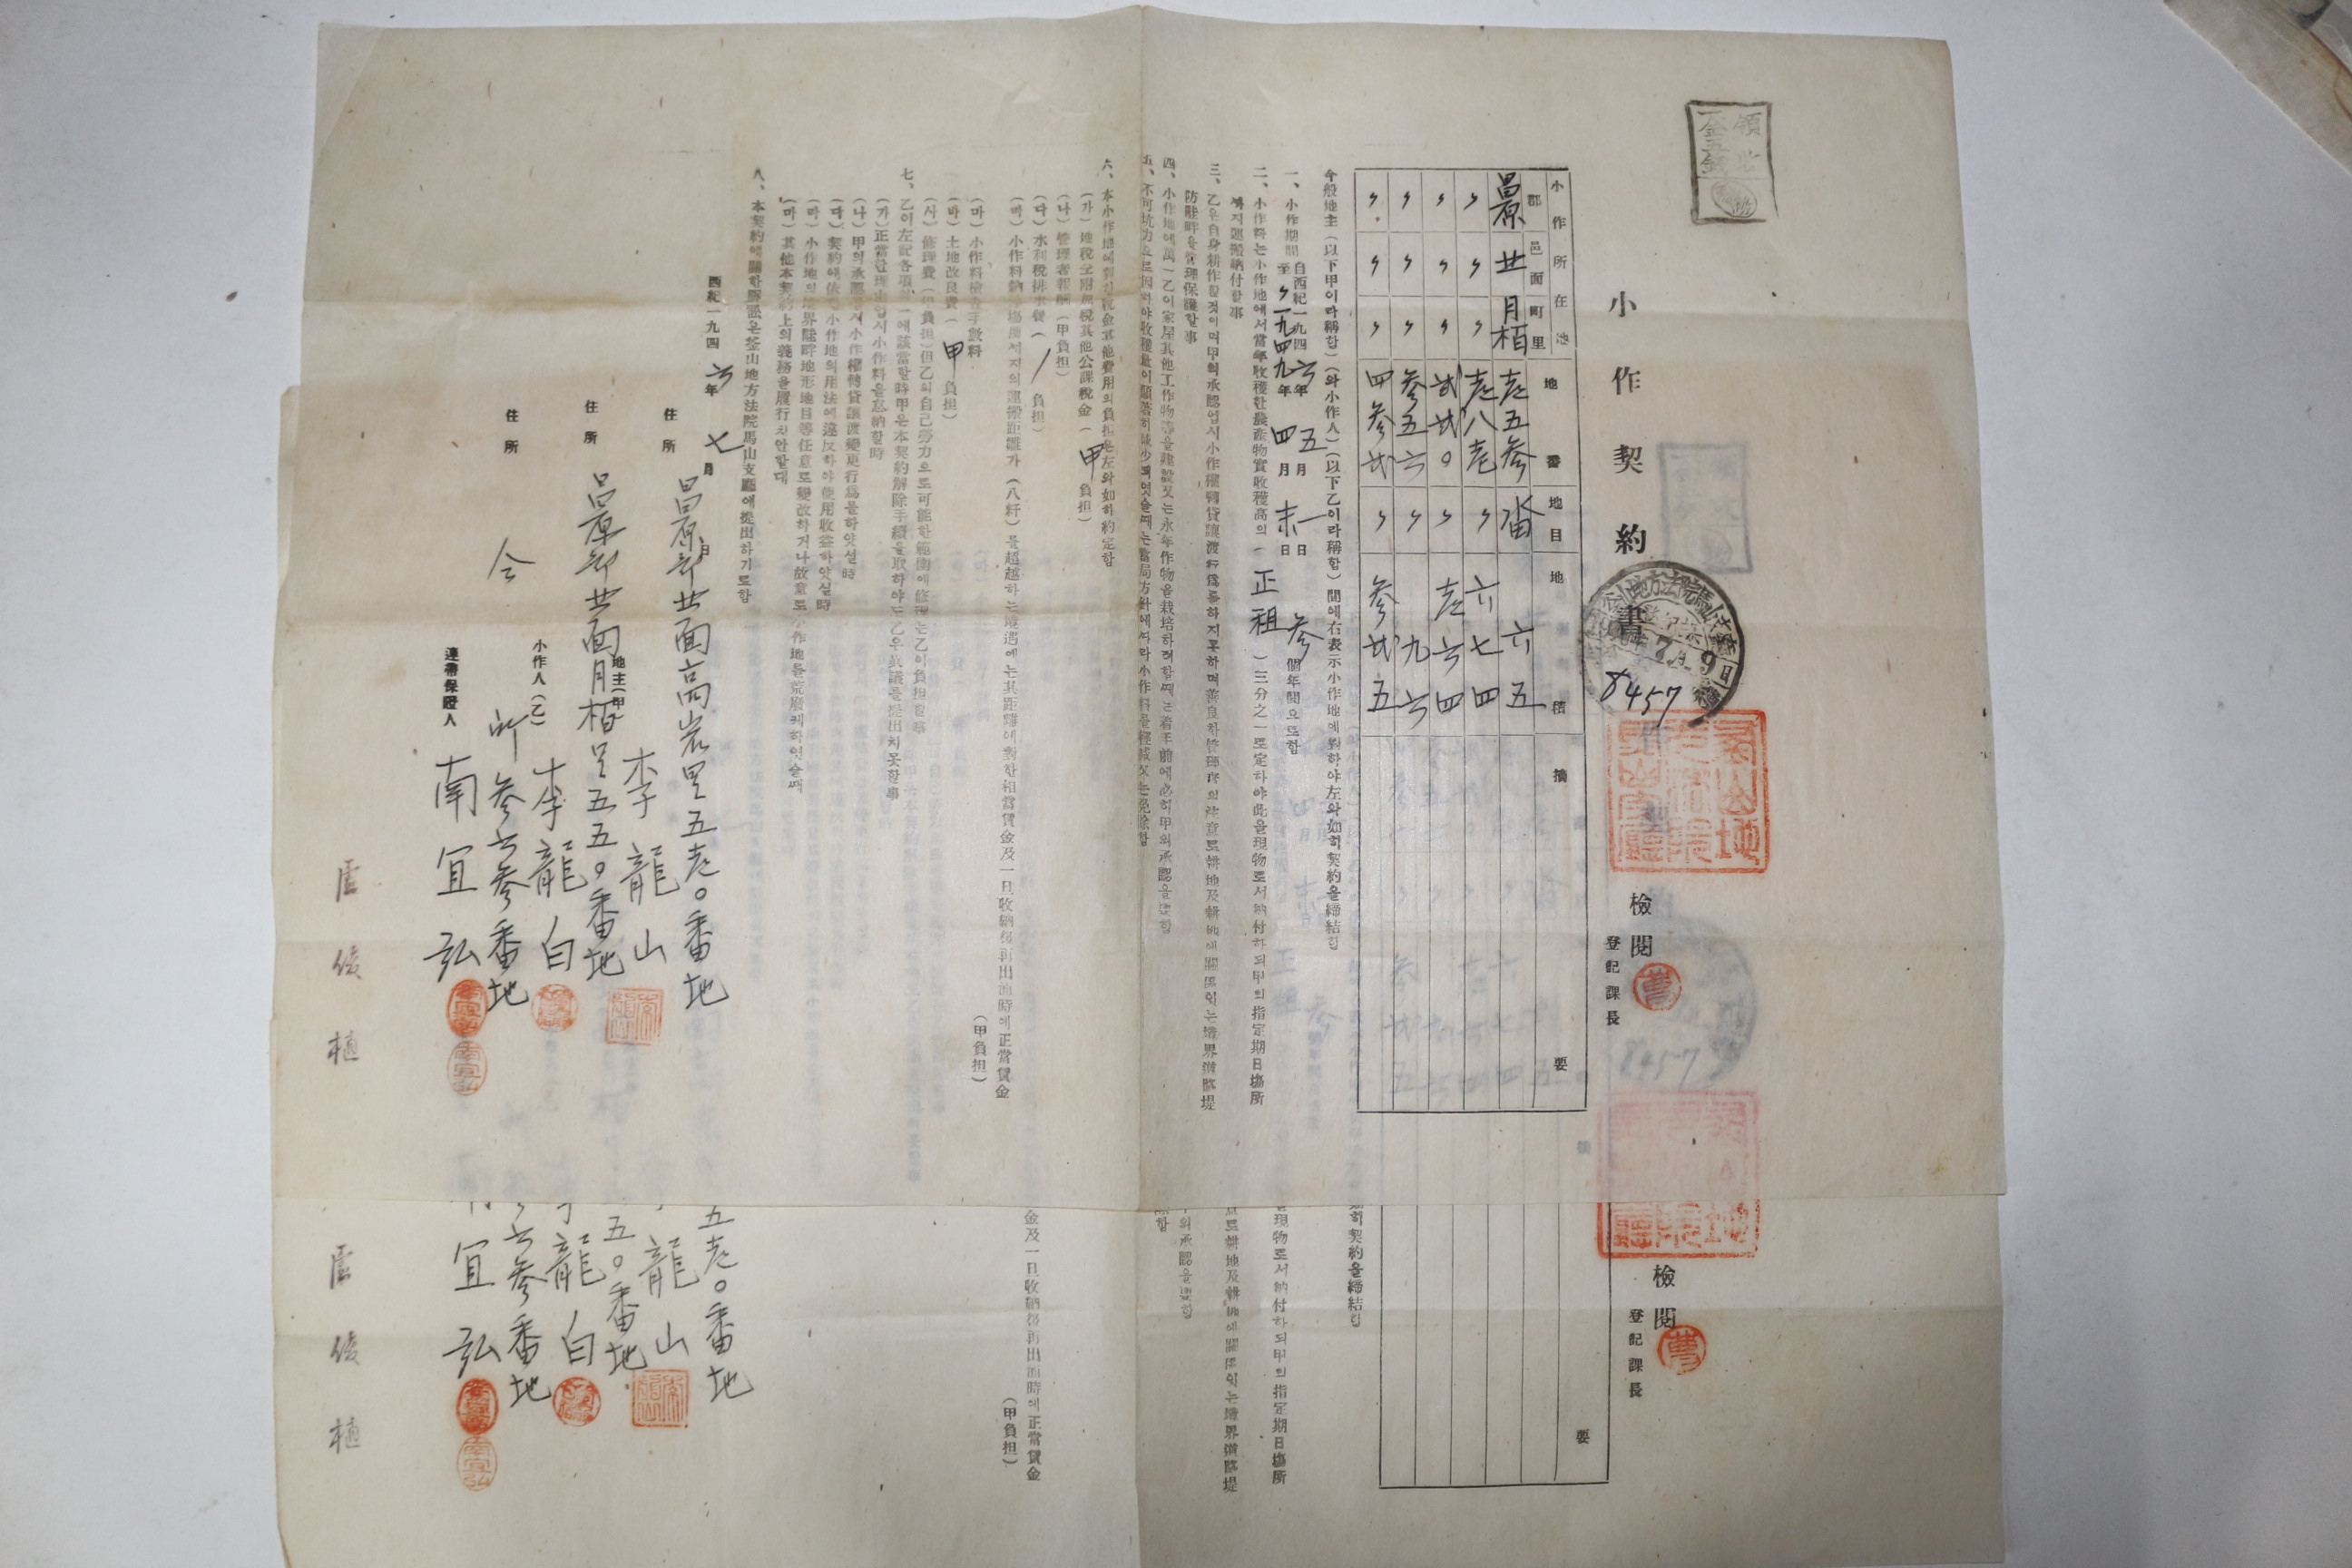 小作契約書
檢閱
登記課長
8457
小作所在地 地番 地目 地積 摘要
郡 邑面 町里
昌原 廿 月栢 壱五参 畓 六五
〃 〃 〃 壱八壱 〃 六七四
〃 〃 〃 弐弐〇 〃 壱六四
〃 〃 〃 参五六 〃 九六
〃 〃 〃 四参弐 〃 参弐五
今般地主(以下甲이라稱함)(와小作人)(以下乙이라稱함)間에右表示小作地에對하야左와如히契約을締結함
一、小作期間 自西紀一九四六年五月一日 至〃一九四九年四月末日 参個年間으로함
二、小作料는小作地에서當年收穫한農產物實收穫高의(正租)三分之一로定하야此을現物로서納付하되甲의指定期日場所
까지運搬納付할事
三、乙은自身耕作할것이며甲의承認업시小作權轉貸讓渡行爲를하지못하며善良한管理者의注意로耕地及耕地에關係잇는境界溝畓堤
防畦畔을管理保護할事
四、小作地에萬一乙이家屋其他工作物等을建設又는永年作物을栽培하려할때는着手前에必히甲의承認을要함
五、不可抗力으로因하야收穫量이顯著히減少되엿슬때는當局方針에따라小作料를輕減又는免除함
六、本小作地에對한稅金其他費用의負担은左와如히約定함
(가)地稅仝附加稅其他公課稅金(甲負担)
(나)管理者報酬(甲負担)
(다)水利稅排水費(/負担)
(라)小作料納付場所까지의運搬距離가(八粁)를超越하는境遇에는其距離에對한相當賃金及一旦收納後再出油時에正當賃金
(甲負担)
(마)小作料檢查手數料
(바)土地改良費(甲負担)
(사)修理費(甲負担)但乙의自己勞力으로可能한範圍에修理는乙이負担할事
七、乙이左記各項의一에該當할時甲은本契約解除手續을取하야도乙은異議를提出치못할事
(가)正當한理由업시小作料을怠納할時
(나)甲의承認업시小作權轉貸讓渡變更行爲를하얏실時
(다)契約에依한小作地의用法에違反하야使用收益하얏실時
(라)小作地의境界畦畔地形地目等任意로變改하거나故意로小作地를荒廢케하엿슬때
(마)其他本契約上의義務을履行치안할때
八、本契約에關한訴訟은釜山地方法院馬山支廳에提出하기로함
西紀一九四六年七月 日
住所 昌原郡廿面高岩里五壱〇番地
地主(甲) 李龍山
住所 昌原郡廿面月栢里五五〇番地
小作人(乙) 李龍白
住所 仝 所 参六参番地
連帶保證人 南宜弘
盧俊植
如히契約을締結함
現物로서納付하되甲의指定期日場所
로耕地及耕地에關係잇는境界溝畓堤
의承認을要함
金及一旦收納後再出油時에正當賃金
(甲負担)
要
檢閱
登記課長
五壱〇番地
龍山
五〇番地
龍白
六参番地
宜弘
盧俊植